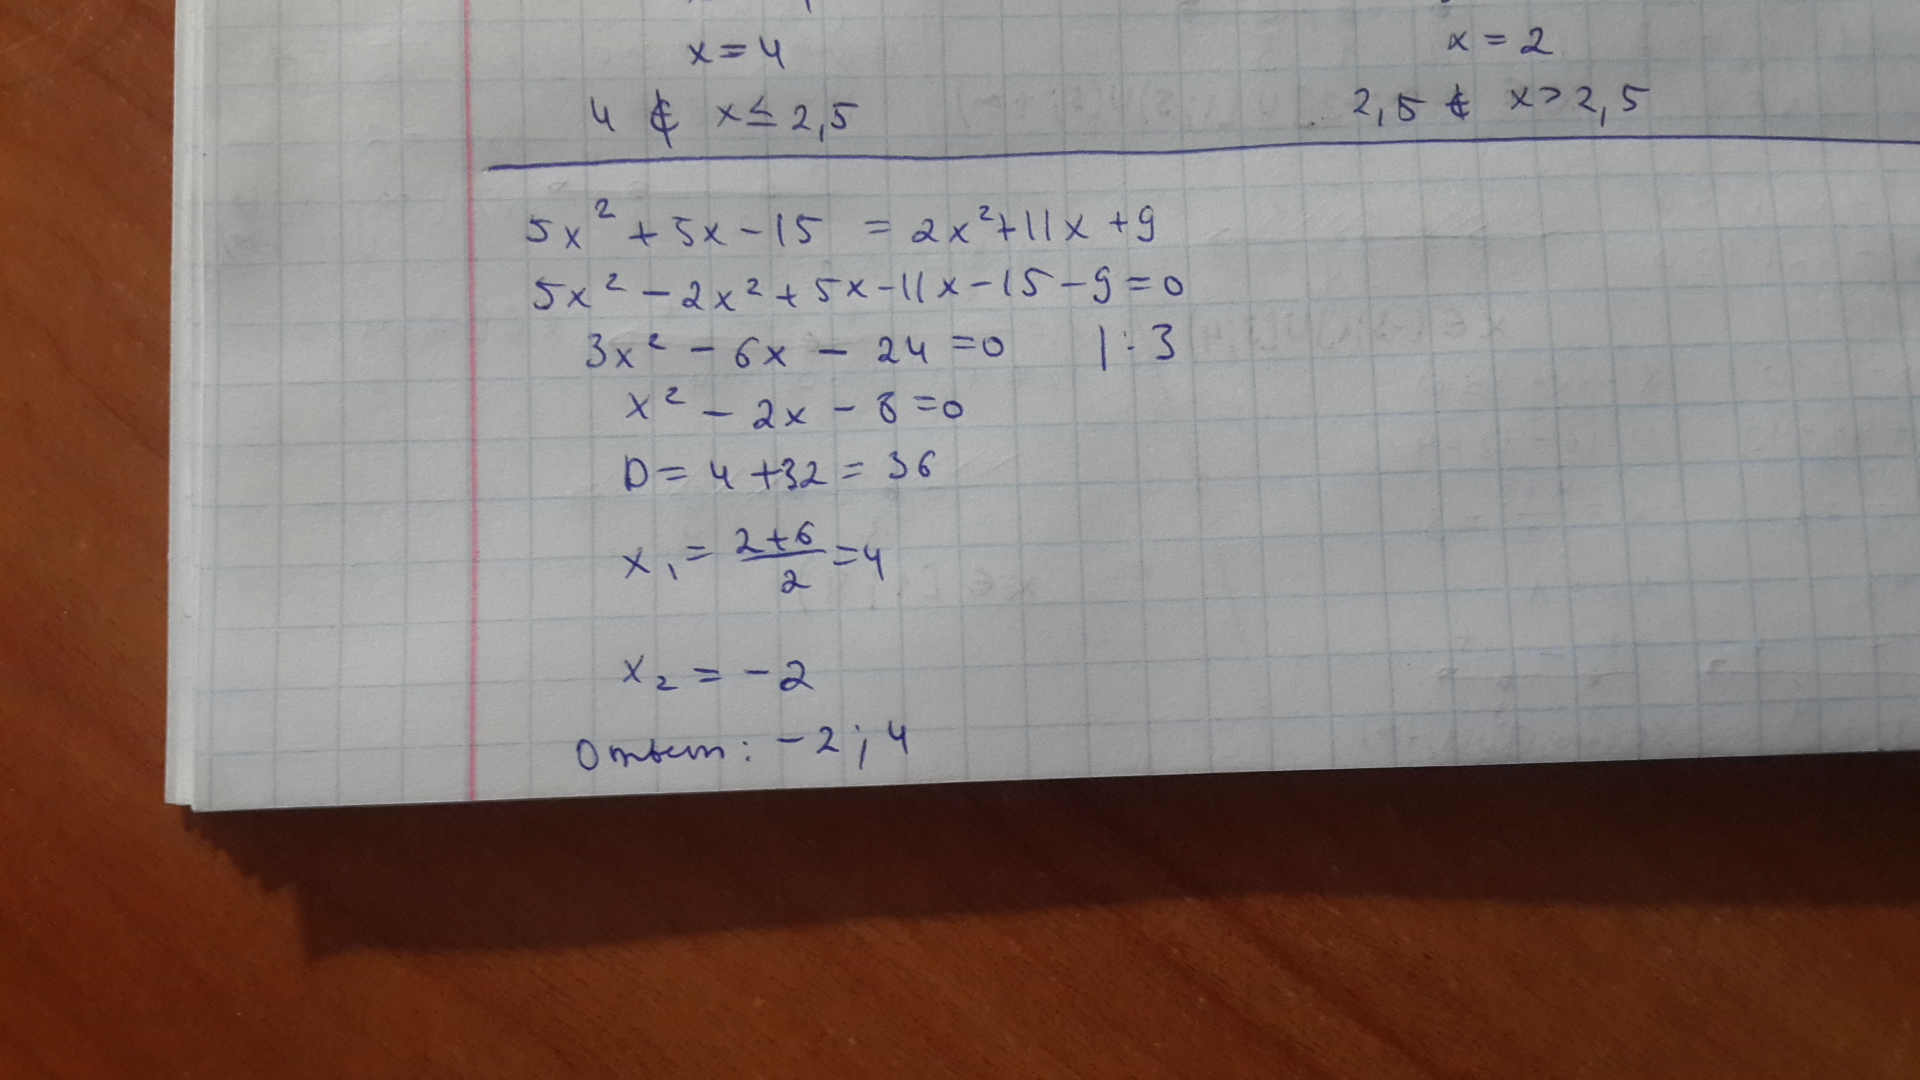 x = 4
x = 2
4 ∉ x ≤ 2,5
2,5 ∉ x > 2,5
5x² + 5x - 15 = 2x² + 11x + 9
5x² - 2x² + 5x - 11x - 15 - 9 = 0
3x² - 6x - 24 = 0 | : 3
x² - 2x - 8 = 0
D = 4 + 32 = 36
x₁ = (2+6)/2 = 4
x₂ = -2
Ответ: -2; 4